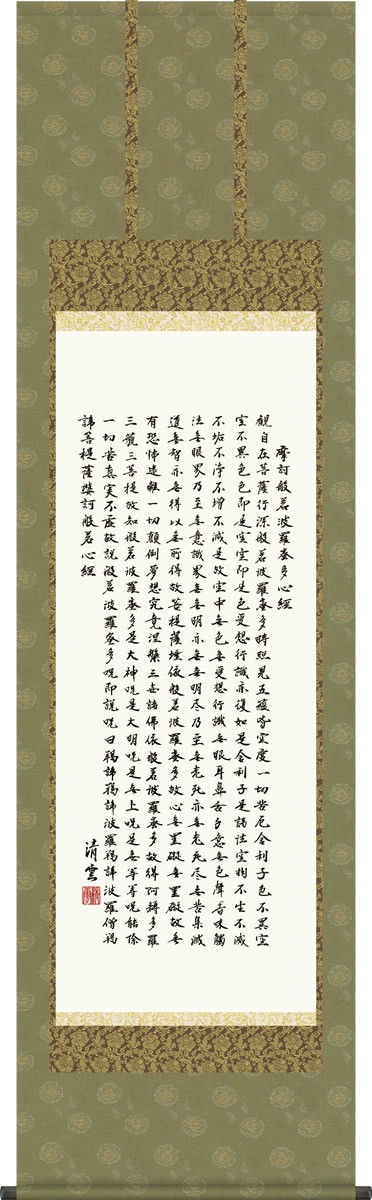 摩訶般若波羅蜜多心経
観自在菩薩行深般若波羅蜜多時照見五蘊皆空度一切苦厄舎利子色不異空
空不異色色即是空空即是色受想行識亦復如是舎利子是諸法空相不生不滅
不垢不浄不増不減是故空中無色無受想行識無眼耳鼻舌身意無色声香味触
法無眼界乃至無意識界無無明亦無無明尽乃至無老死亦無老死尽無苦集滅
道無智亦無得以無所得故菩提薩埵依般若波羅蜜多故心無罣礙無罣礙故無
有恐怖遠離一切顛倒夢想究竟涅槃三世諸佛依般若波羅蜜多故得阿耨多羅
三藐三菩提故知般若波羅蜜多是大神呪是大明呪是無上呪是無等等呪能除
一切苦真実不虚故説般若波羅蜜多呪即説呪曰羯諦羯諦波羅羯諦波羅僧羯
諦菩提薩婆訶般若心経
清雲